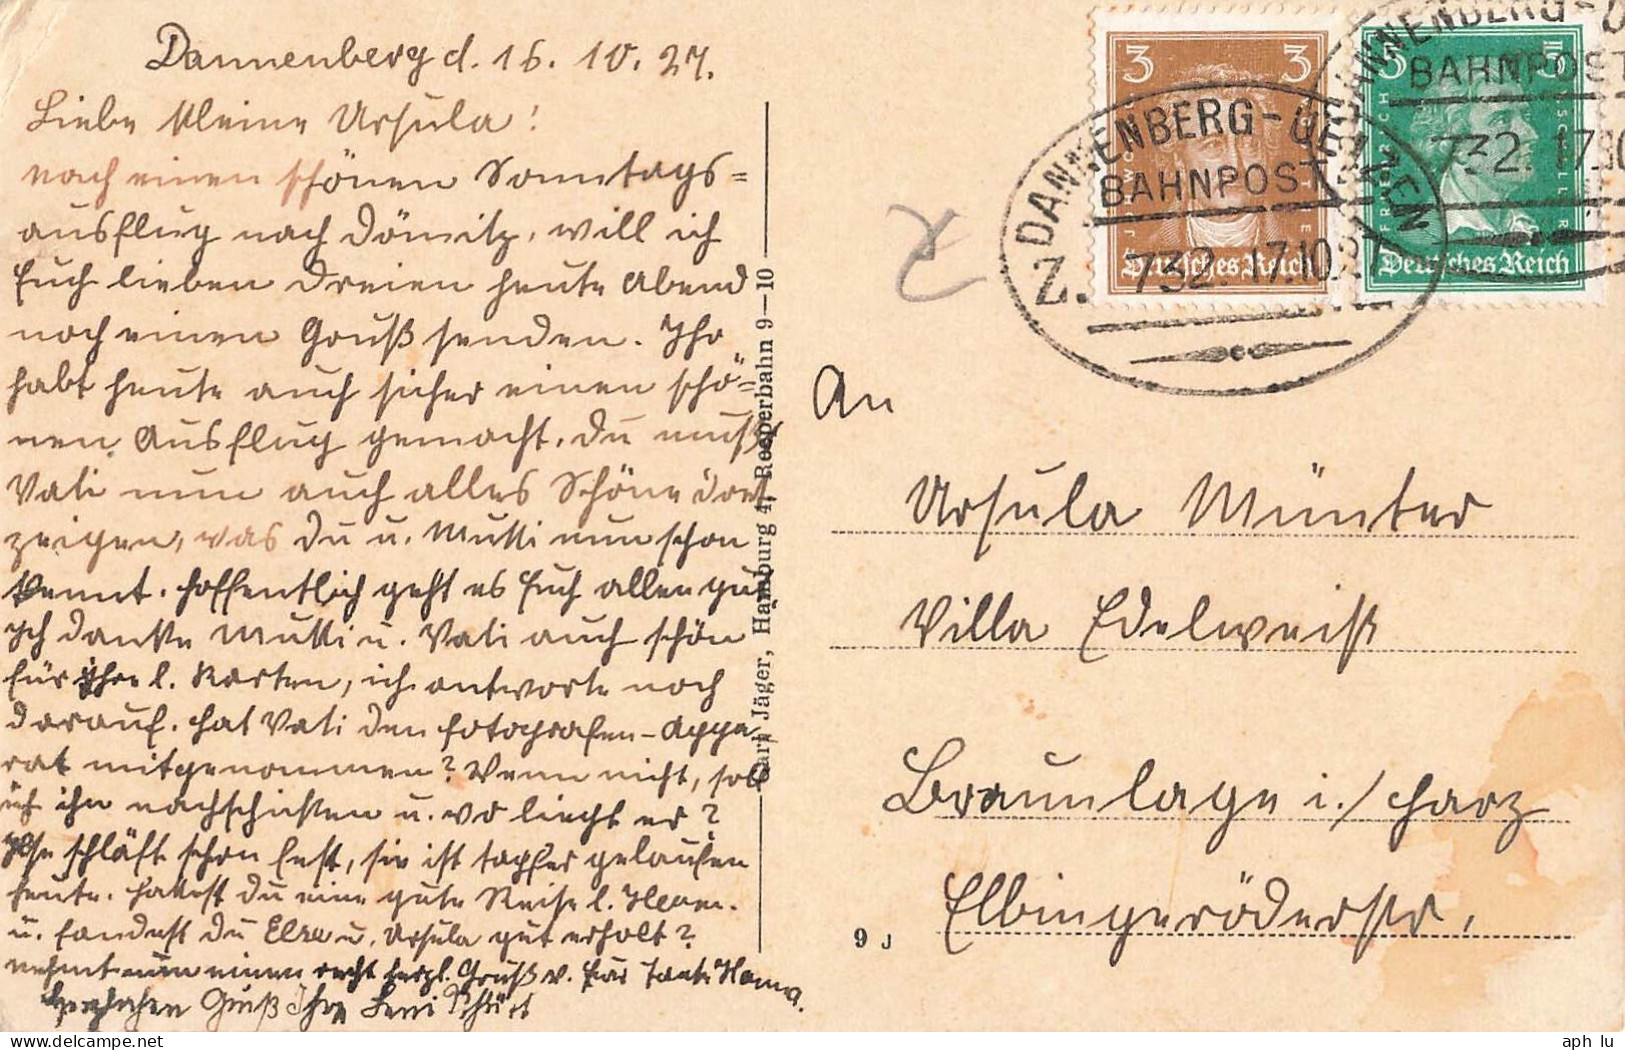 Dannenberg d. 16. 10. 27.
Liebe kleine Ursula!
nach einen schönen Sonntags=
ausflug nach Dömitz, will ich
Euch lieben Dreien heute Abend
noch einen Gruß senden. Ihr
habt heute auch sicher einen schö=
nen Ausflug gemacht. Du mußt
Vati nun auch alles Schöne dort
zeigen, was Du u. Mutti nun schon
kennt. Hoffentlich geht es Euch allen gut
Ich danke Mutti u. Vati auch schön
für ihre l. Karten, ich antworte noch
darauf. Hat Vati den Fotografen-Appa
rat mitgenommen? Wenn nicht, soll
ich ihn nachschicken u. wo liegt er?
Ilse schläft schon fest, sie ist tapfer gelaufen
heute. Hattest Du eine gute Reise l.
u. fandest Du u. Ursula gut erholt?
nehmt nun einen recht herzl. Gruß v. Tante
Gruß Ihre Leni
Carl Jäger, Hamburg 4, Reeperbahn 9—10
3 3
Deutsches Reich
5 5
FRIEDRICH V SCHILLER
Deutsches Reich
DANNENBERG-UELZEN
BAHNPOST
Z. 732. 17.10.27
DANNENBERG-U
BAHNPOST
732. 17.10
An
Ursula Münter
Villa Edelweiß
Braunlage i./Harz
Elbingeröderstr.
9 J
aph lu